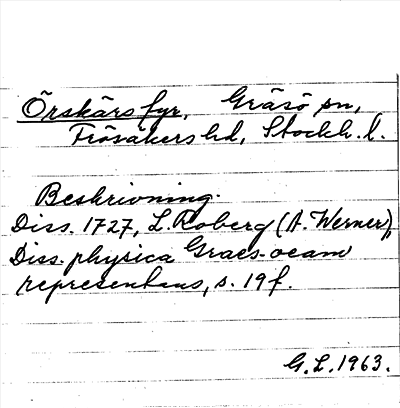 Örskärs fyr, Gräsö sn,
Frösåkers hd, Stockh. l.
Beskrivning.
Diss. 1727, L. Roberg (A. Werner),
Diss. physica Graes-oeam
representans, s. 19 f.
G. L. 1963.